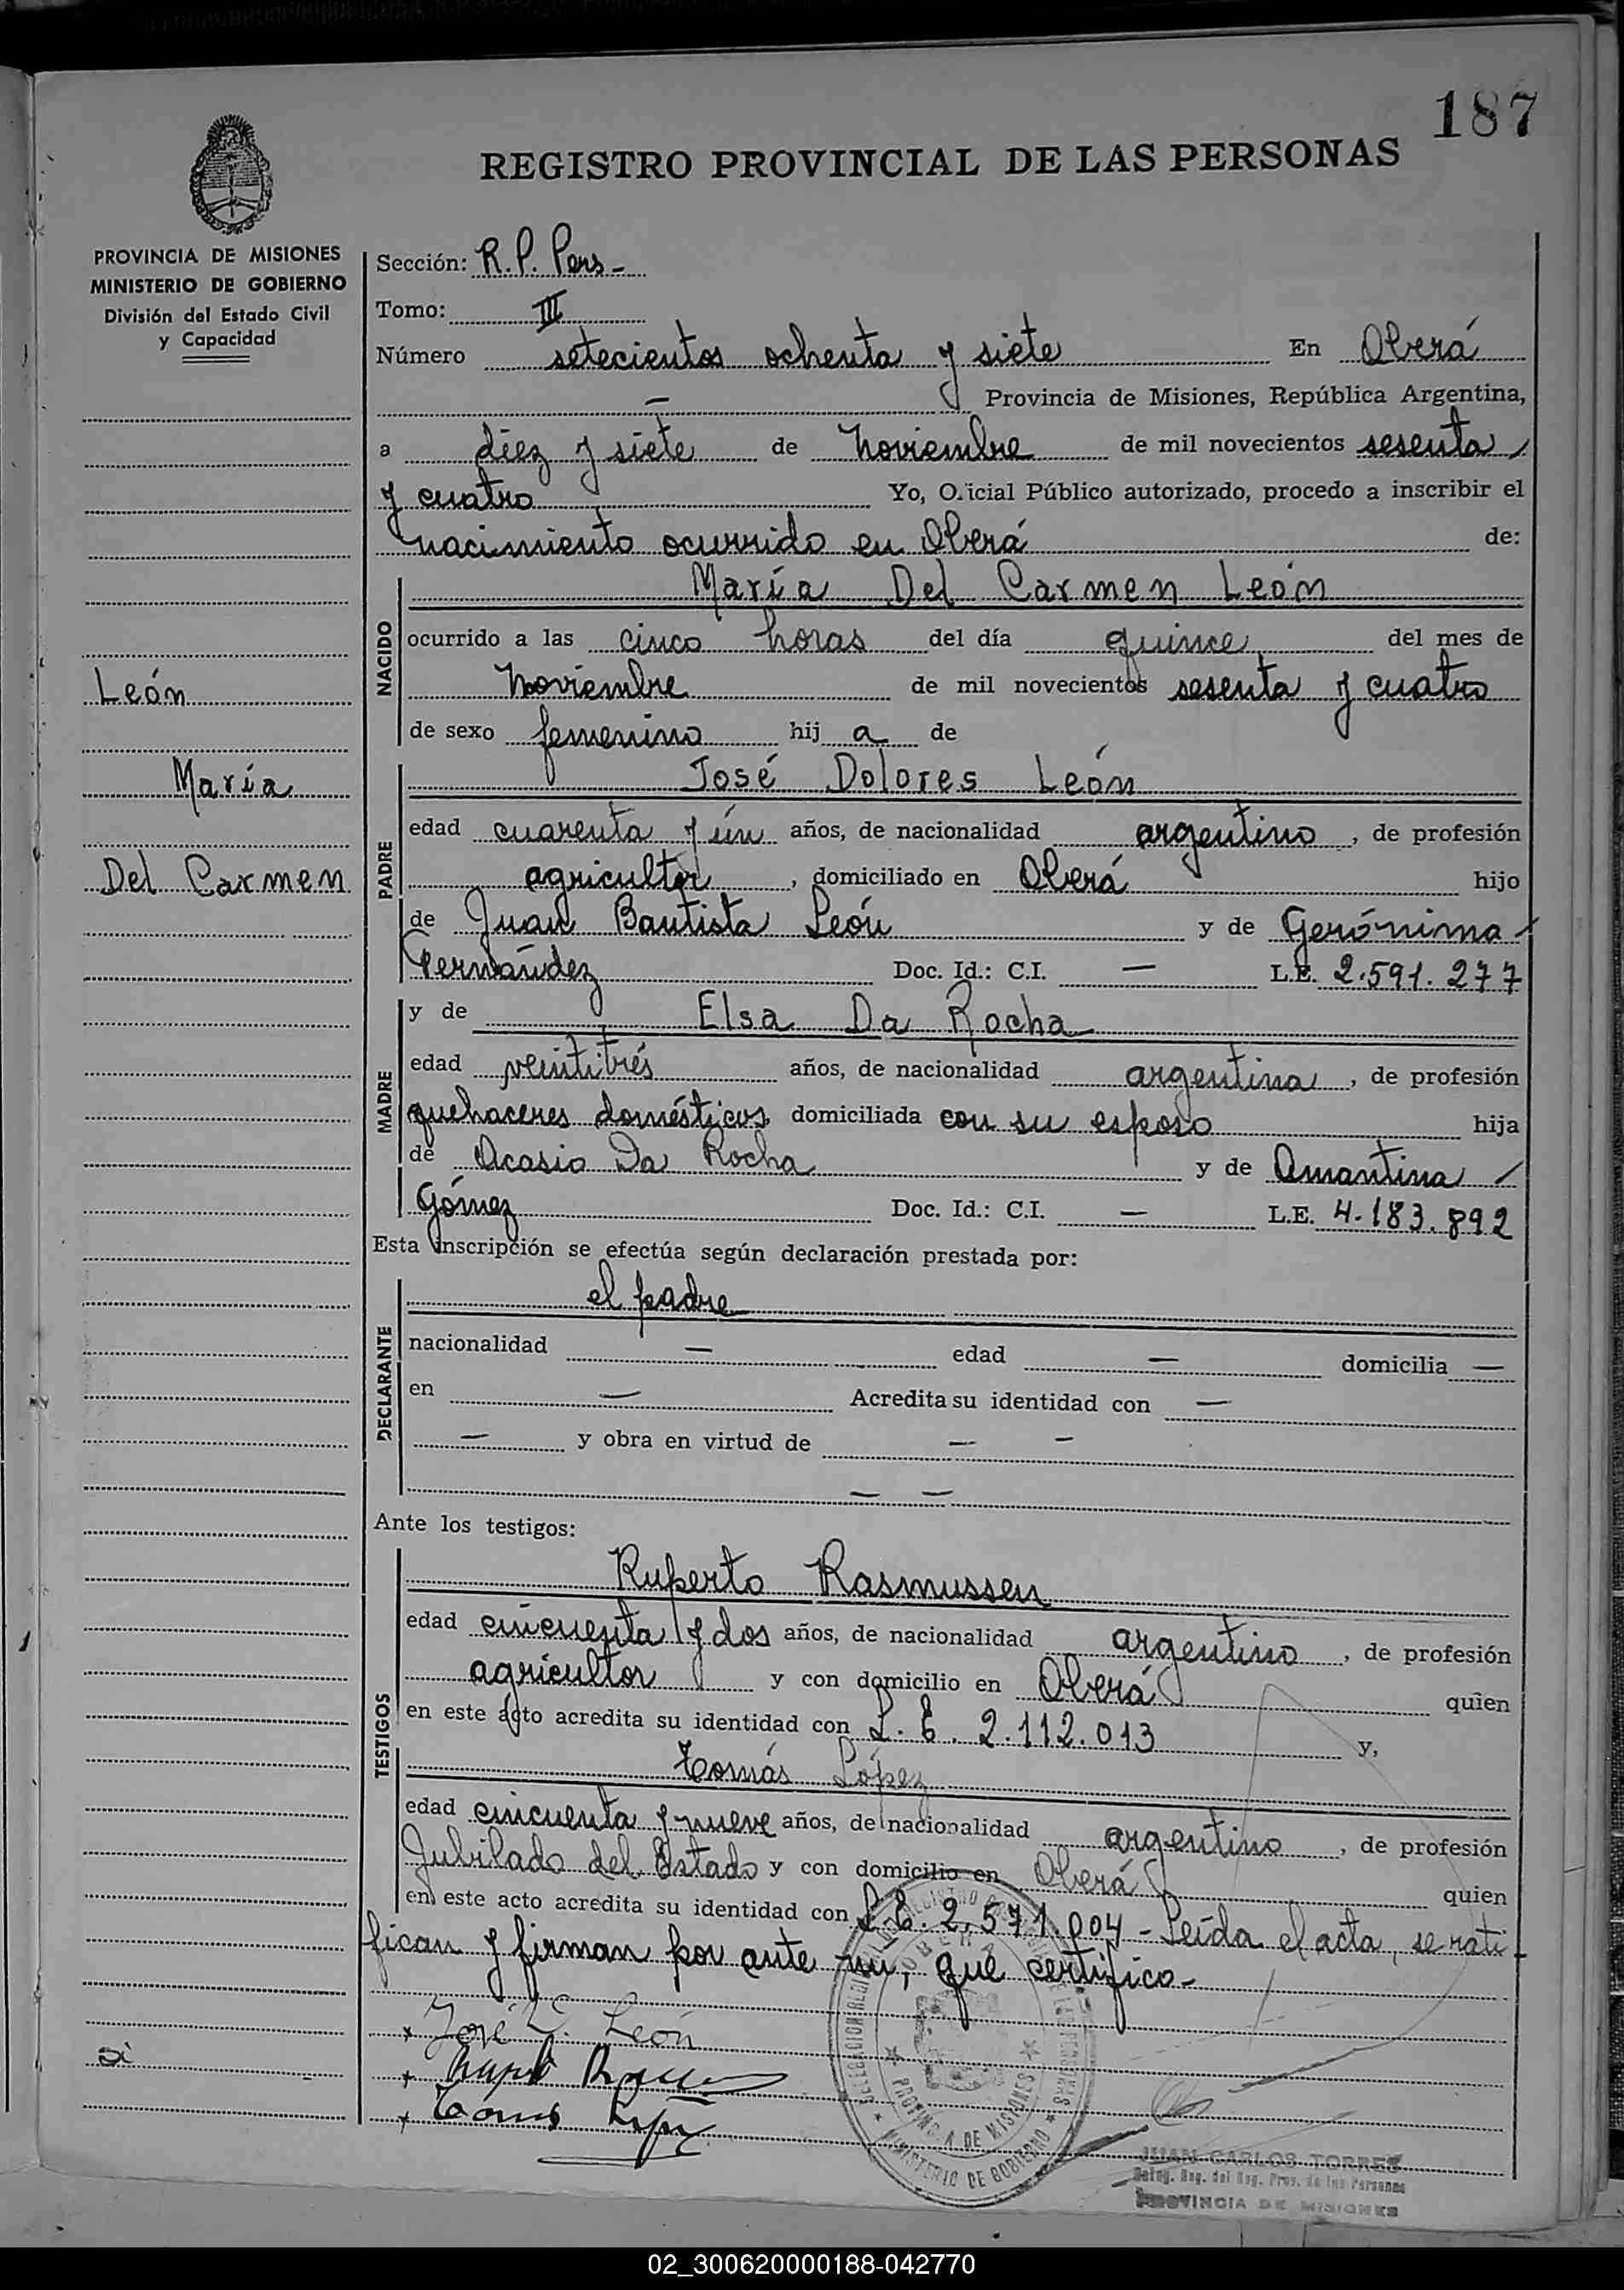 187
REGISTRO PROVINCIAL DE LAS PERSONAS
PROVINCIA DE MISIONES
MINISTERIO DE GOBIERNO
División del Estado Civil
y Capacidad
León
María
Del Carmen
si
Sección: R. P. Pers-
Tomo: III
Número setecientos ochenta y siete En Oberá
— Provincia de Misiones, República Argentina,
a diez y siete de Noviembre de mil novecientos sesenta
y cuatro Yo, Oficial Público autorizado, procedo a inscribir el
nacimiento ocurrido en Oberá de:
NACIDO
María Del Carmen León
ocurrido a las cinco horas del día quince del mes de
Noviembre de mil novecientos sesenta y cuatro
de sexo femenino hij a de
PADRE
José Dolores León
edad cuarenta y ún años, de nacionalidad argentino, de profesión
agricultor, domiciliado en Oberá hijo
de Juan Bautista León y de Gerónima
Fernández Doc. Id.: C.I. — L.E. 2.591.277
MADRE
y de Elsa Da Rocha
edad veintitrés años, de nacionalidad argentina, de profesión
quehaceres domésticos domiciliada con su esposo hija
de Acasio Da Rocha y de Amantina
Gómez Doc. Id.: C.I. — L.E. 4.183.892
Esta inscripción se efectúa según declaración prestada por:
DECLARANTE
el padre
nacionalidad — edad — domicilia —
en — Acredita su identidad con —
— y obra en virtud de — —
— —
Ante los testigos:
TESTIGOS
Ruperto Rasmussen
edad cincuenta y dos años, de nacionalidad argentino, de profesión
agricultor y con domicilio en Oberá quien
en este acto acredita su identidad con L. E. 2.112.013 y,
Tomás López
edad cincuenta y nueve años, de nacionalidad argentino, de profesión
Jubilado del Estado y con domicilio en Oberá quien
en este acto acredita su identidad con L.E. 2.571.004 - Leída el acta, se rati-
fican y firman por ante mi, que certifico-
x José D. León
x
x Tomás López
OBERÁ
PROVINCIA DE MISIONES
MINISTERIO DE GOBIERNO
JUAN CARLOS TORRES
Deleg. Reg. del Reg. Prov. de las Personas
PROVINCIA DE MISIONES
02_300620000188-042770